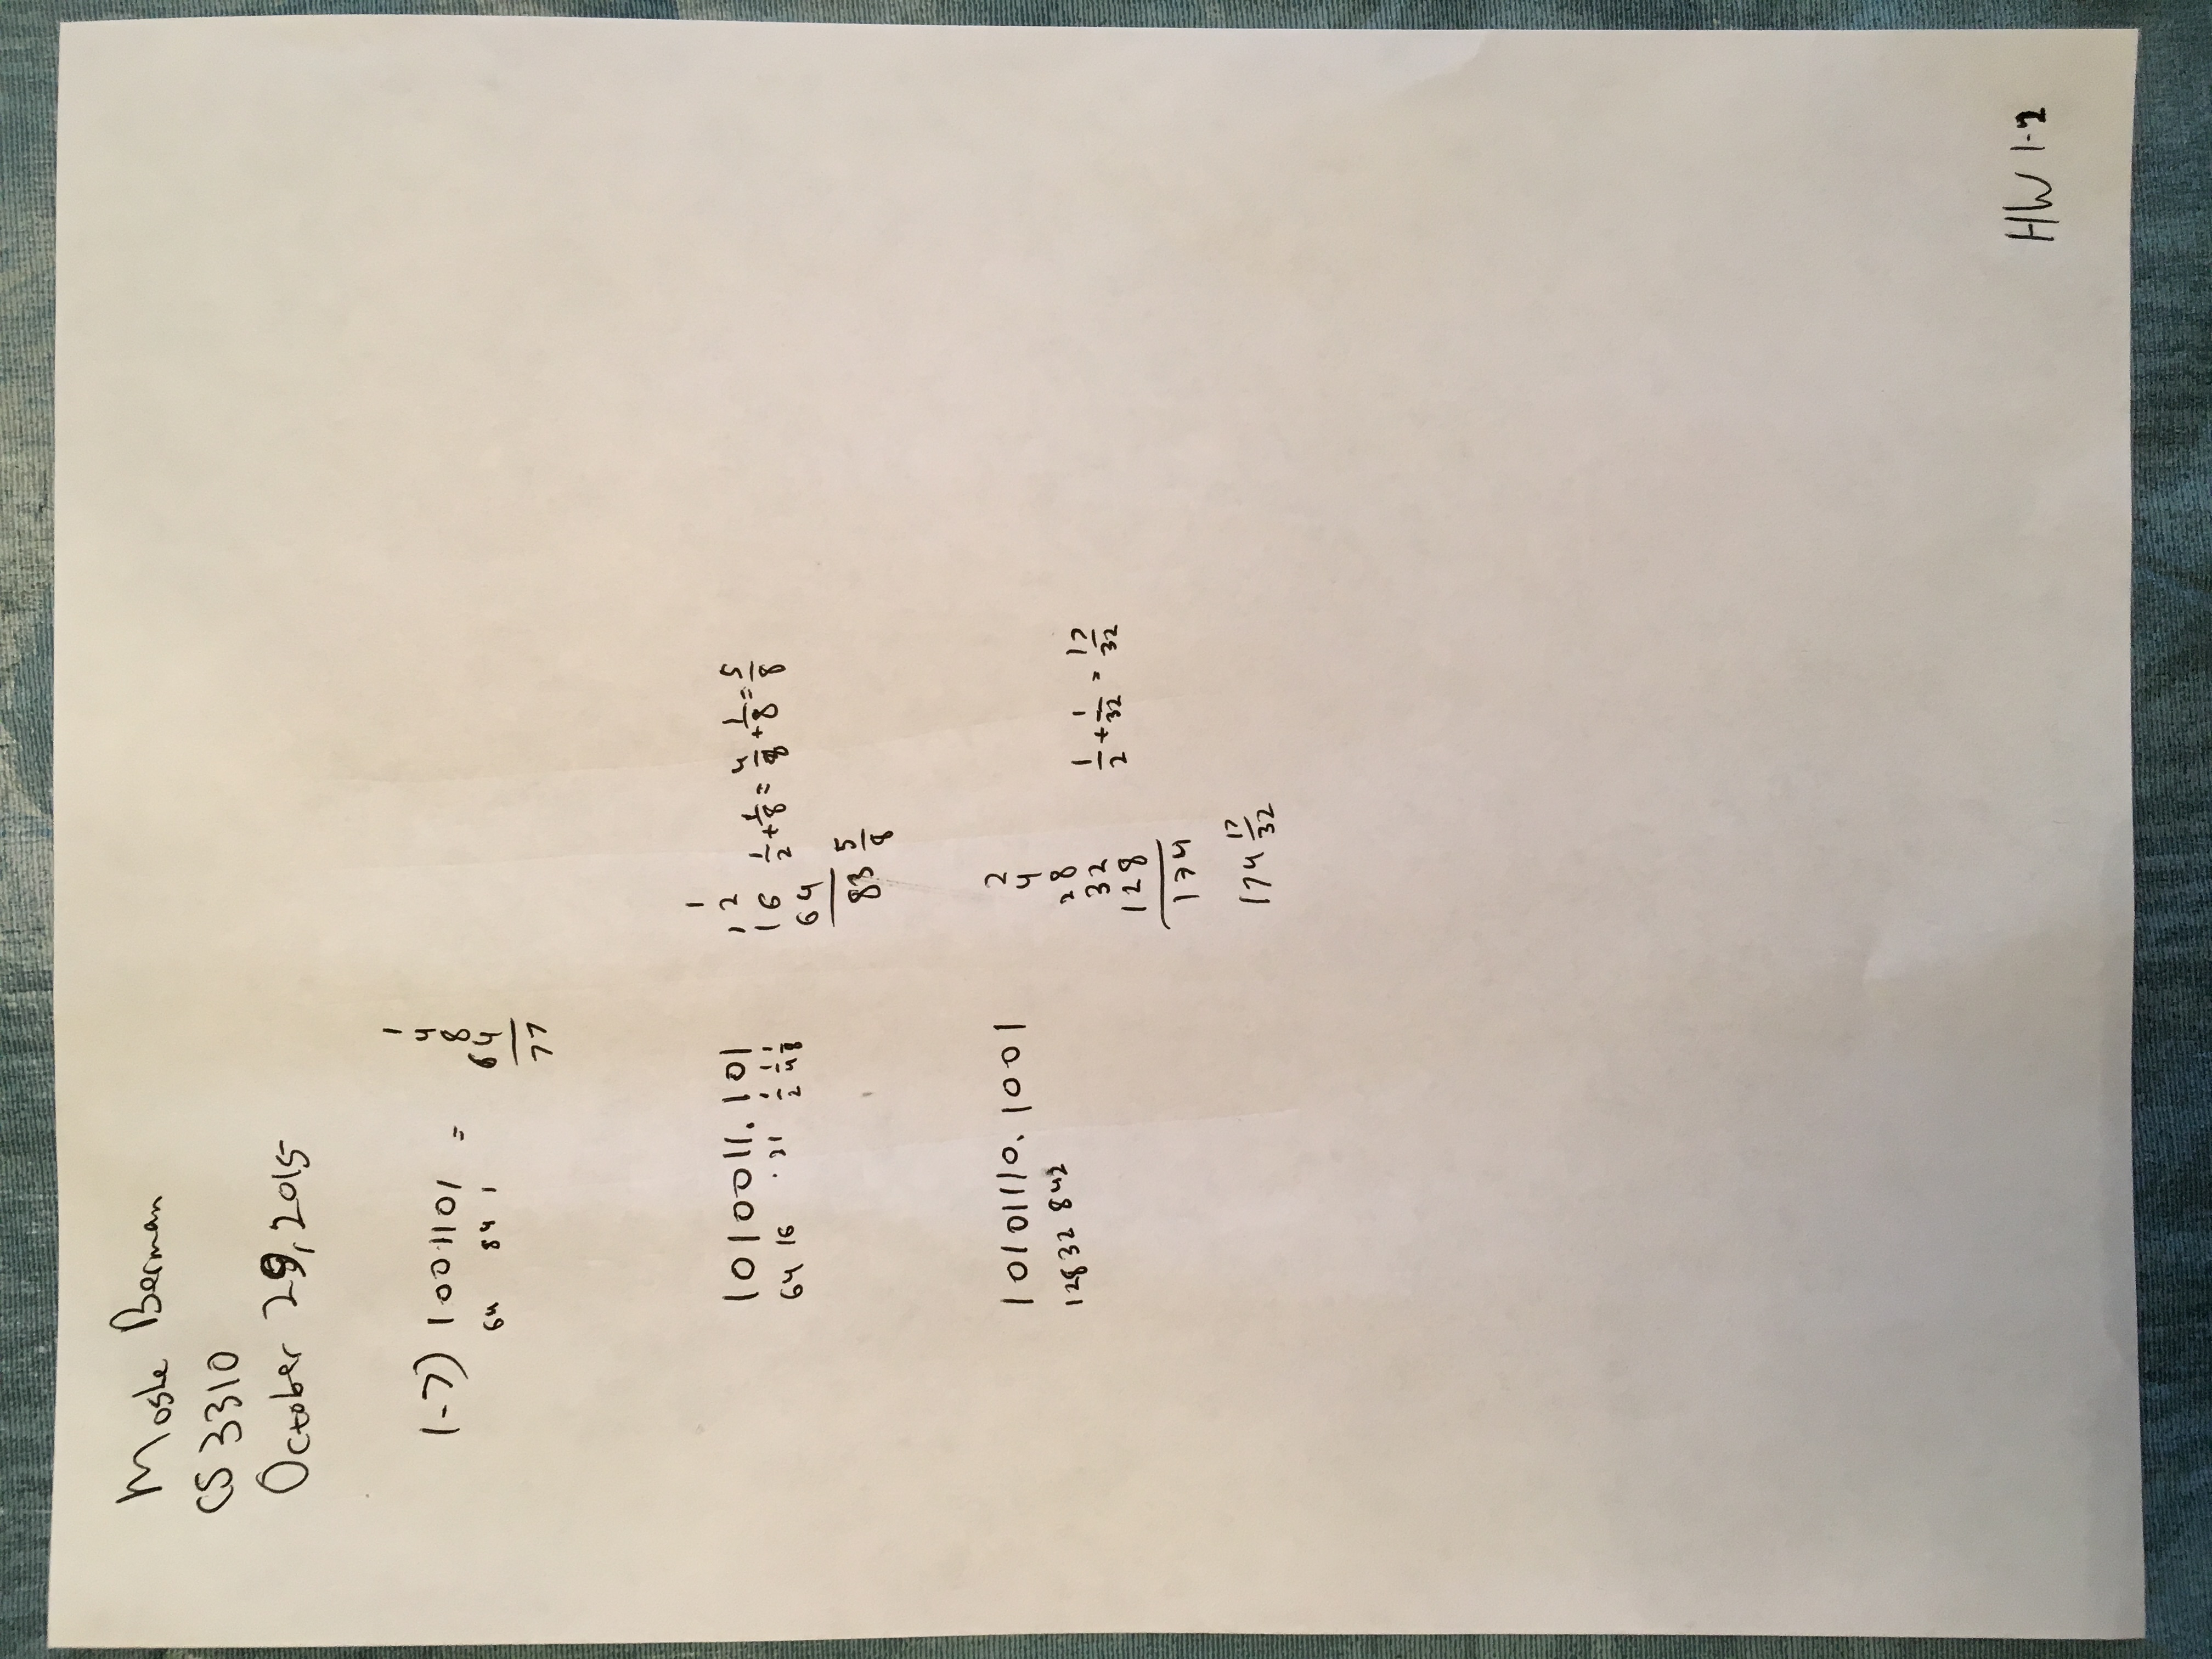 Moshe Berman
CS 3310
October 29, 2015
1-7) 1001101 =
64 84 1
1
4
8
64
77
1010011.101
64 16 21 1/2 1/4 1/8
1
2
16
64
83 5/8
1/2 + 1/8 = 4/8 + 1/8 = 5/8
10101110.1001
128 32 8 4 2
2
4
28
32
128
174
1/2 + 1/32 = 17/32
174 17/32
HW 1-2